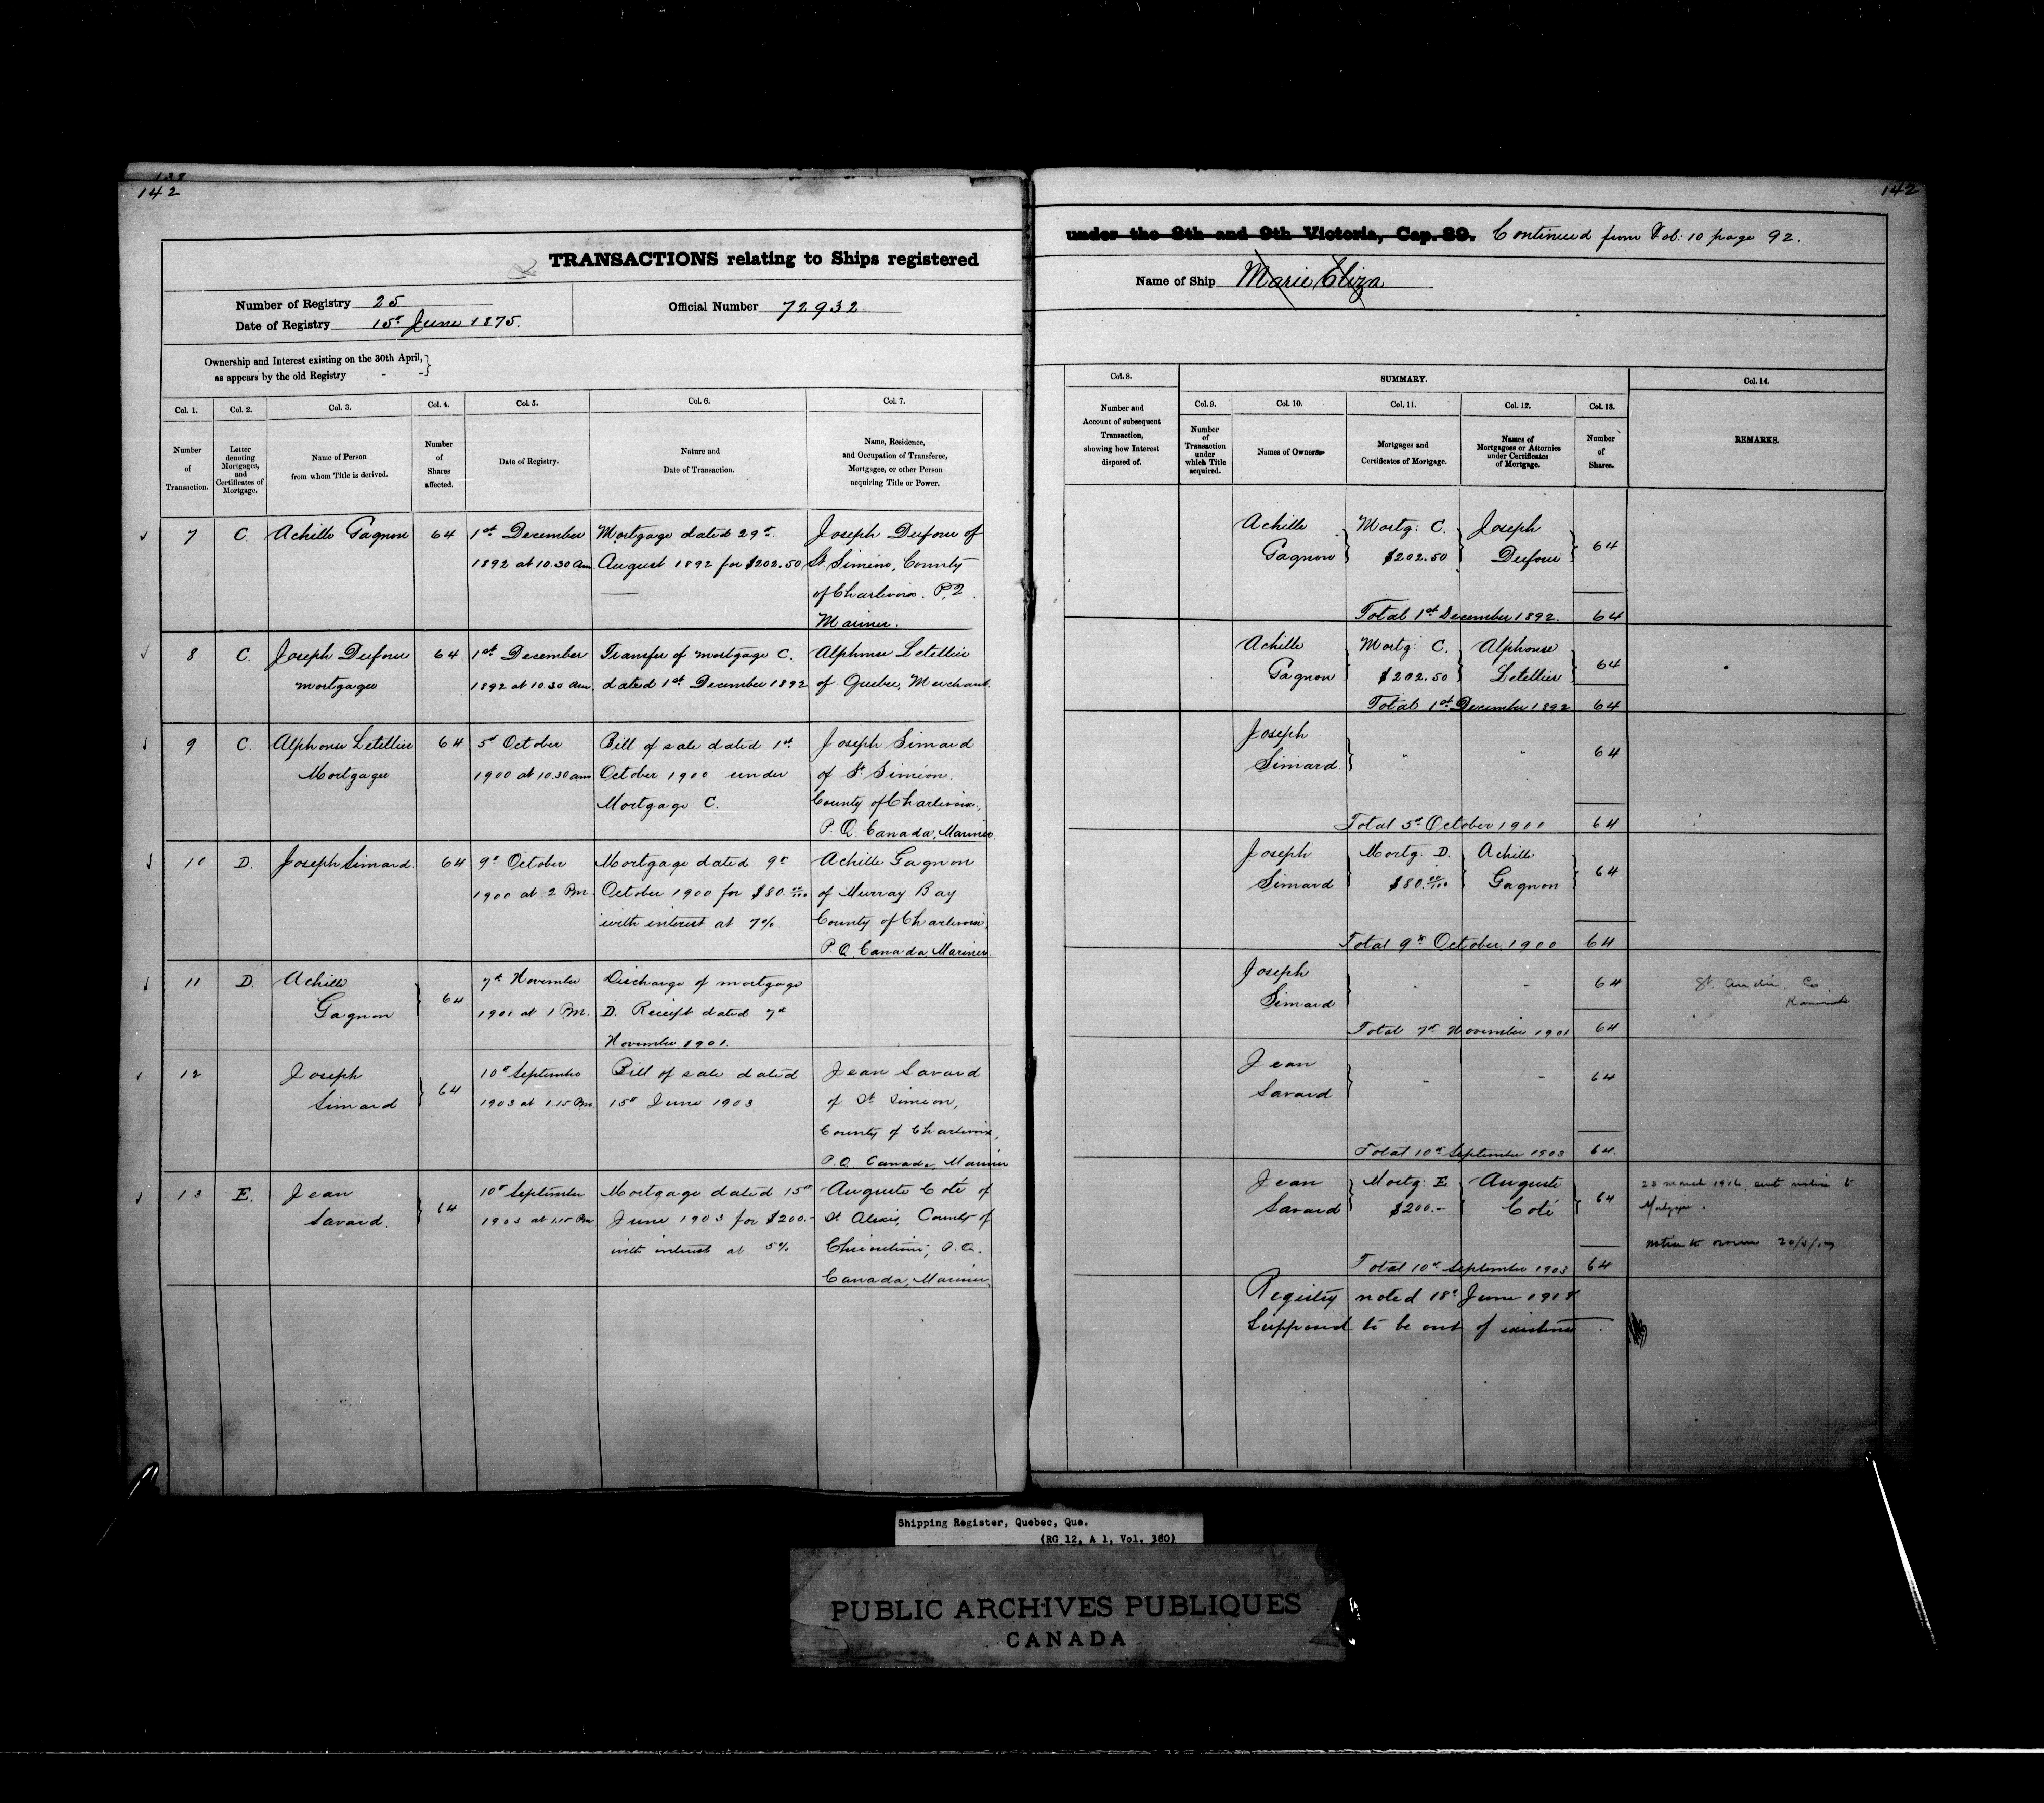 138
142
142
TRANSACTIONS relating to Ships registered
under the 8th and 9th Victoria, Cap. 89. Continued from Fol: 10 page 92.
Number of Registry 25
Date of Registry 15t June 1875.
Official Number 72932
Name of Ship Marie Eliza
Ownership and Interest existing on the 30th April,
as appears by the old Registry - -
Col. 1. Col. 2. Col. 3. Col. 4. Col. 5. Col. 6. Col. 7.
Number of Transaction.
Letter denoting Mortgages, and Certificates of Mortgage.
Name of Person from whom Title is derived.
Number of Shares affected.
Date of Registry.
Nature and Date of Transaction.
Name, Residence, and Occupation of Transferee, Mortgagee, or other Person acquiring Title or Power.
7 C. Achille Gagnon 64
1st December
1892 at 10.30 am
Mortgage dated 29t
August 1892 for $202.50
Joseph Dufour of
St. Siméon, County
of Charlevoix. P.Q.
Mariner.
8 C. Joseph Dufour 64
mortgagee
1st December
1892 at 10.30 am
Transfer of mortgage C.
dated 1st December 1892
Alphonse Letellier
of Quebec, Merchant.
9 C. Alphonse Letellier 64
Mortgagee
5t October
1900 at 10.30 am
Bill of sale dated 1st
October 1900 under
Mortgage C.
Joseph Simard
of St. Siméon.
County of Charlevoix,
P. Q. Canada, Mariner.
10 D. Joseph Simard. 64
9t October
1900 at 2 Pm.
Mortgage dated 9t
October 1900 for $80.00/100
with interest at 7%
Achille Gagnon
of Murray Bay
County of Charlevoix,
P. Q. Canada, Mariner.
11 D. Achille
Gagnon 64
7t November
1901 at 1 Pm.
Discharge of mortgage
D. Receipt dated 7t
November 1901.
12 Joseph
Simard 64
10t September
1903 at 1.15 Pm.
Bill of sale dated
15t June 1903
Jean Savard
of St Simeon,
County of Charlevoix,
P.Q. Canada, Mariner
13 E. Jean
Savard. 64
10t September
1903 at 1.15 Pm
Mortgage dated 15t
June 1903 for $200.-
with interest at 5%
Auguste Coté of
St Alexis, County of
Chicoutimi, P.Q.
Canada, Mariner.
Col. 8. SUMMARY. Col. 14.
Col. 9. Col. 10. Col. 11. Col. 12. Col. 13.
Number and Account of subsequent Transaction, showing how Interest disposed of.
Number of Transaction under which Title acquired.
Names of Owners
Mortgages and Certificates of Mortgage.
Names of Mortgagees or Attornies under Certificates of Mortgage.
Number of Shares.
REMARKS.
Achille Mortg: C. Joseph
Gagnon $202.50 Dufour 64
Total 1st December 1892. 64
Achille Mortg: C. Alphonse
Gagnon $202.50 Letellier 64
Total 1st December 1892 64
Joseph
Simard. " " 64
Total 5t October 1900 64
Joseph Mortg: D. Achille
Simard $80.00/100 Gagnon 64
Total 9t October 1900 64
Joseph
Simard - - 64
Total 7t November 1901 64
St. André, Co.
Jean
Savard - - 64
Total 10t September 1903 64.
Jean Mortg: E. Auguste
Savard $200.- Coté 64
Total 10t September 1903 64
23 march 1916, sent notice to
Mortgagee.
notice to owner
Registry noted 18t June 1918
Supposed to be out of existence.
Shipping Register, Quebec, Que.
(RG 12, A 1, Vol. 380)
PUBLIC ARCHIVES PUBLIQUES
CANADA